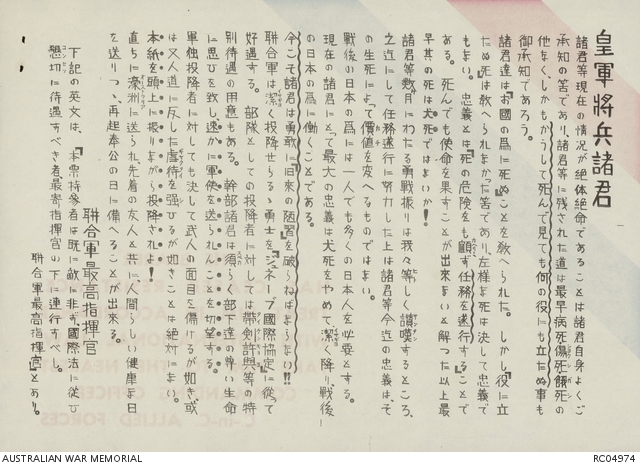 皇軍將兵諸君
諸君等現在の情況が絶体絶命であることは諸君自身よくご
承知の筈であり、諸君等に残された道は最早病死傷死餓死の
他なく、しかもかうして死んで見ても何の役にも立たぬ事も
御承知であろう。
諸君達は『お國の爲に死ぬ』ことを教へられた。しかし『役に立
たぬ死は教へられなかった筈であり左様な死は決して忠義で
もない。忠義とは『死の危險をも顧ず任務を遂行する』ことで
ある。死んでも使命を果すことが出來ないと解った以上最
早其の死は犬死ではないか!
諸君等數ヶ月にわたる勇戰振りは我々等しく讃嘆するところ、
之迄にして任務遂行に努力した上は諸君等今迄の忠義は、そ
の生死によって價値を変へるものではない。
戰後の日本の爲には一人でも多くの日本人を必要とする。
現在の諸君にとって最大の忠義は犬死をやめて、潔く降り、戰後
の日本の爲に働くことである。
今こそ諸君は勇敢に『旧來の陋習』を破らねばならない!!
聯合軍は潔く投降せらるゝ勇士を『ジュネーブ國際協定』に從って
好遇する。部隊としての投降者に対しては帶剣許與等の特
別待遇の用意もある。幹部諸君は須らく部下達の尊い生命
に思ひを致し速かに軍使を送られんことを切望する。
單独投降者に対しても決して武人の面目を傷けるが如き或
は又人道に反した虐待を强ひるが如きことは絶対にない。
本紙を頭上に振りながら投降されよ!
直ちに濠洲に送られ先着の友人と共に人間らしい健康な日
を送りつゝ、再起奉公の日に備へることが出來る。
聯合軍最高指揮官
下記の英文は、『本票持参者は既に敵に非ず、國際法に從ひ
懇切に待遇すべき者、最寄指揮官の下に連行すべし。
聯合軍最高指揮官』とあり。
C-in-C ALLIED FORCES
AUSTRALIAN WAR MEMORIAL
RC04974